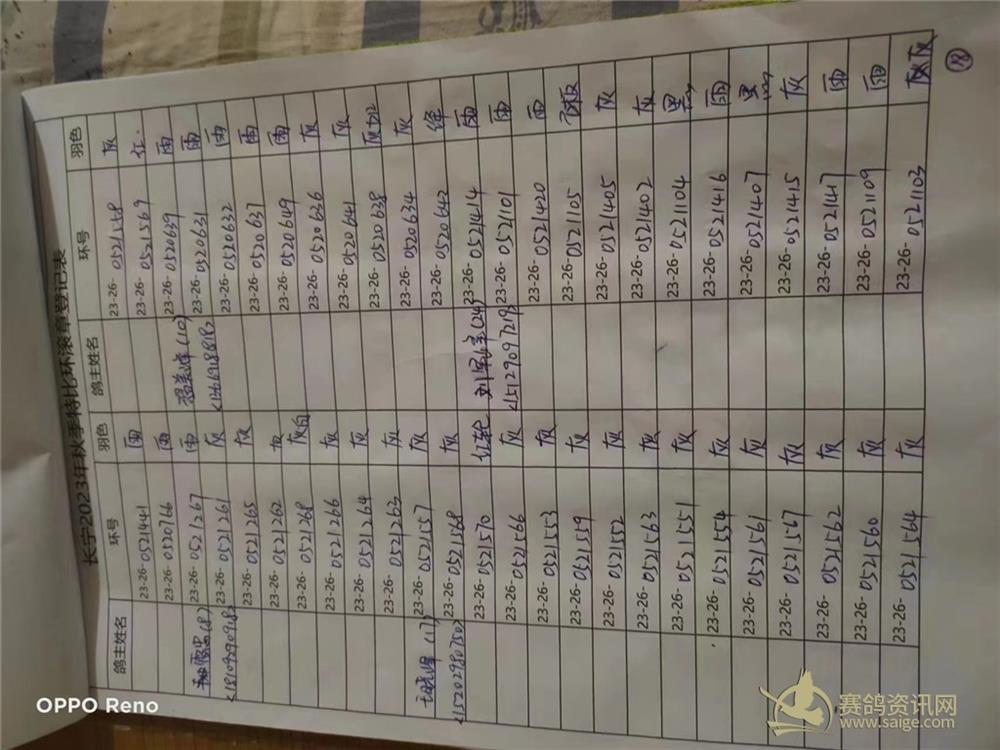 长宁2023年秋季特比环滚章登记表
鸽主姓名 环号 羽色 鸽主姓名 环号 羽色
23-26-0521441 雨 23-26-0521558 灰
23-26-0520766 雨 23-26-0521569 红
(8) 23-26-0521267 雨 (10) 23-26-0520639 雨
<18109290918> 23-26-0521261 灰 23-26-0520631 雨
23-26-0521265 灰 23-26-0520632 雨
23-26-0521262 灰 23-26-0520637 雨
23-26-0521268 灰白 23-26-0520649 雨
23-26-0521266 灰 23-26-0520636 灰
23-26-0521264 灰 23-26-0520641 灰
23-26-0521263 灰 23-26-0520638
(17) 23-26-0521557 灰 23-26-0520634 灰
<15202980750> 23-26-0521568 灰 23-26-0520642 绛
23-26-0521570 红轮 (24) 23-26-0521414 雨
23-26-0521566 灰 <15129097219> 23-26-0521101 雨
23-26-0521553 灰 23-26-0521420 雨
23-26-0521559 灰 23-26-0521105
23-26-052152 灰 23-26-0521405 灰
23-26-0521563 灰 23-26-0521402 灰
23-26-0521551 灰 23-26-0521104 黑
23-26-0521554 灰 23-26-0521416 雨
23-26-0521561 灰 23-26-0521407 黑
23-26-0521567 灰 23-26-0521415 灰
23-26-0521562 灰 23-26-0521447 雨
23-26-0521560 灰 23-26-0521109 雨
23-26-0521564 灰 23-26-0521103 灰
18
OPPO Reno
赛鸽资讯网
www.saige.com